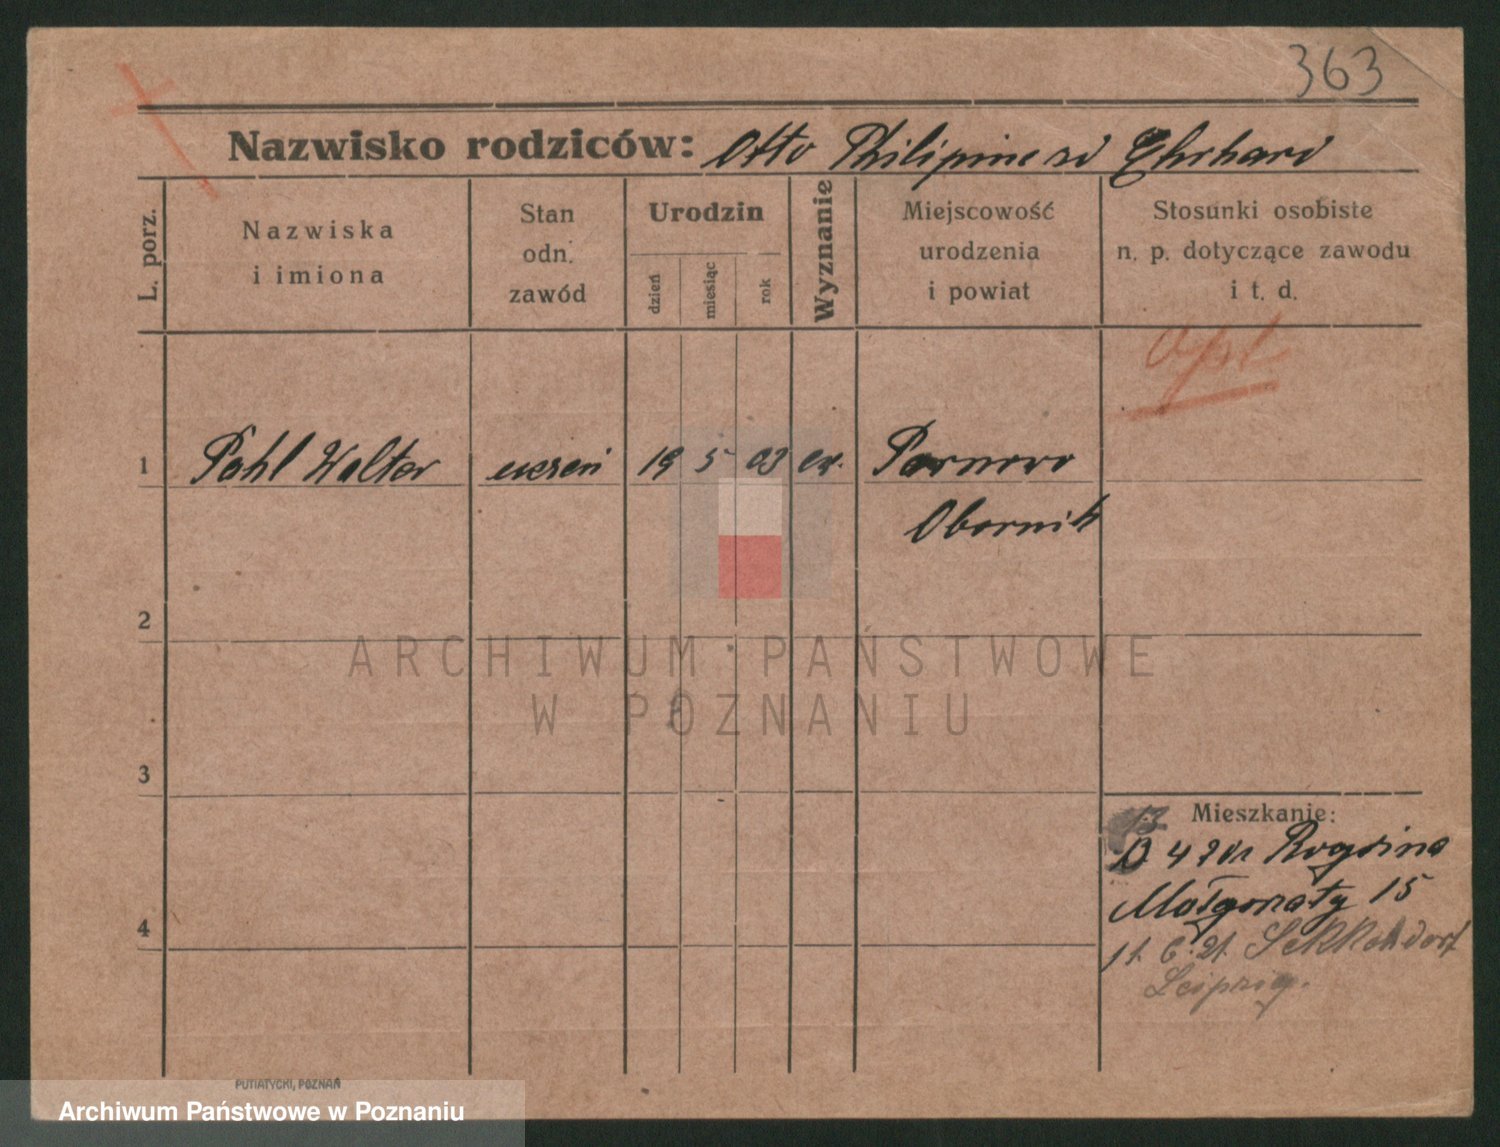 363
Nazwisko rodziców: Otto Philipine zd Ehrhard
L. porz.
Nazwiska
i imiona
Stan
odn.
zawód
Urodzin
dzień
miesiąc
rok
Wyznanie
Miejscowość
urodzenia
i powiat
Stosunki osobiste
n. p. dotyczące zawodu
i t. d.
1
Pahl Walter
uczeń
19
5
03
ew.
Parnowo
Obornik
2
3
4
Mieszkanie:
13
4 201 Rogozina
Małgorzaty 15
11. 6. 21. Sekkendorf
Leipzig.
PUTIATYCKI, POZNAŃ
ARCHIWUM PAŃSTWOWE
W POZNANIU
Archiwum Państwowe w Poznaniu